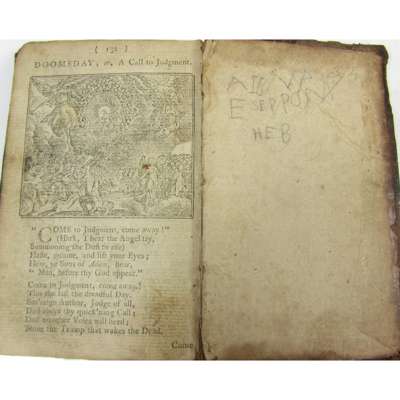 ( 152 )
DOOMSDAY; or, A Call to Judgment.
"COME to Judgment, come away!"
(Hark, I hear the Angel say,
Summoning the Dust to rise)
Haste, resume, and lift your Eyes;
Hear, ye Sons of Adam, hear,
"Man, before thy God appear."
Come to Judgment, come away!
This the last, the dreadful Day.
Sov'reign Author, Judge of all,
Dust obeys thy quick'ning Call;
Dust no other Voice will heed;
Thine the Trump that wakes the Dead.
Come
HEB